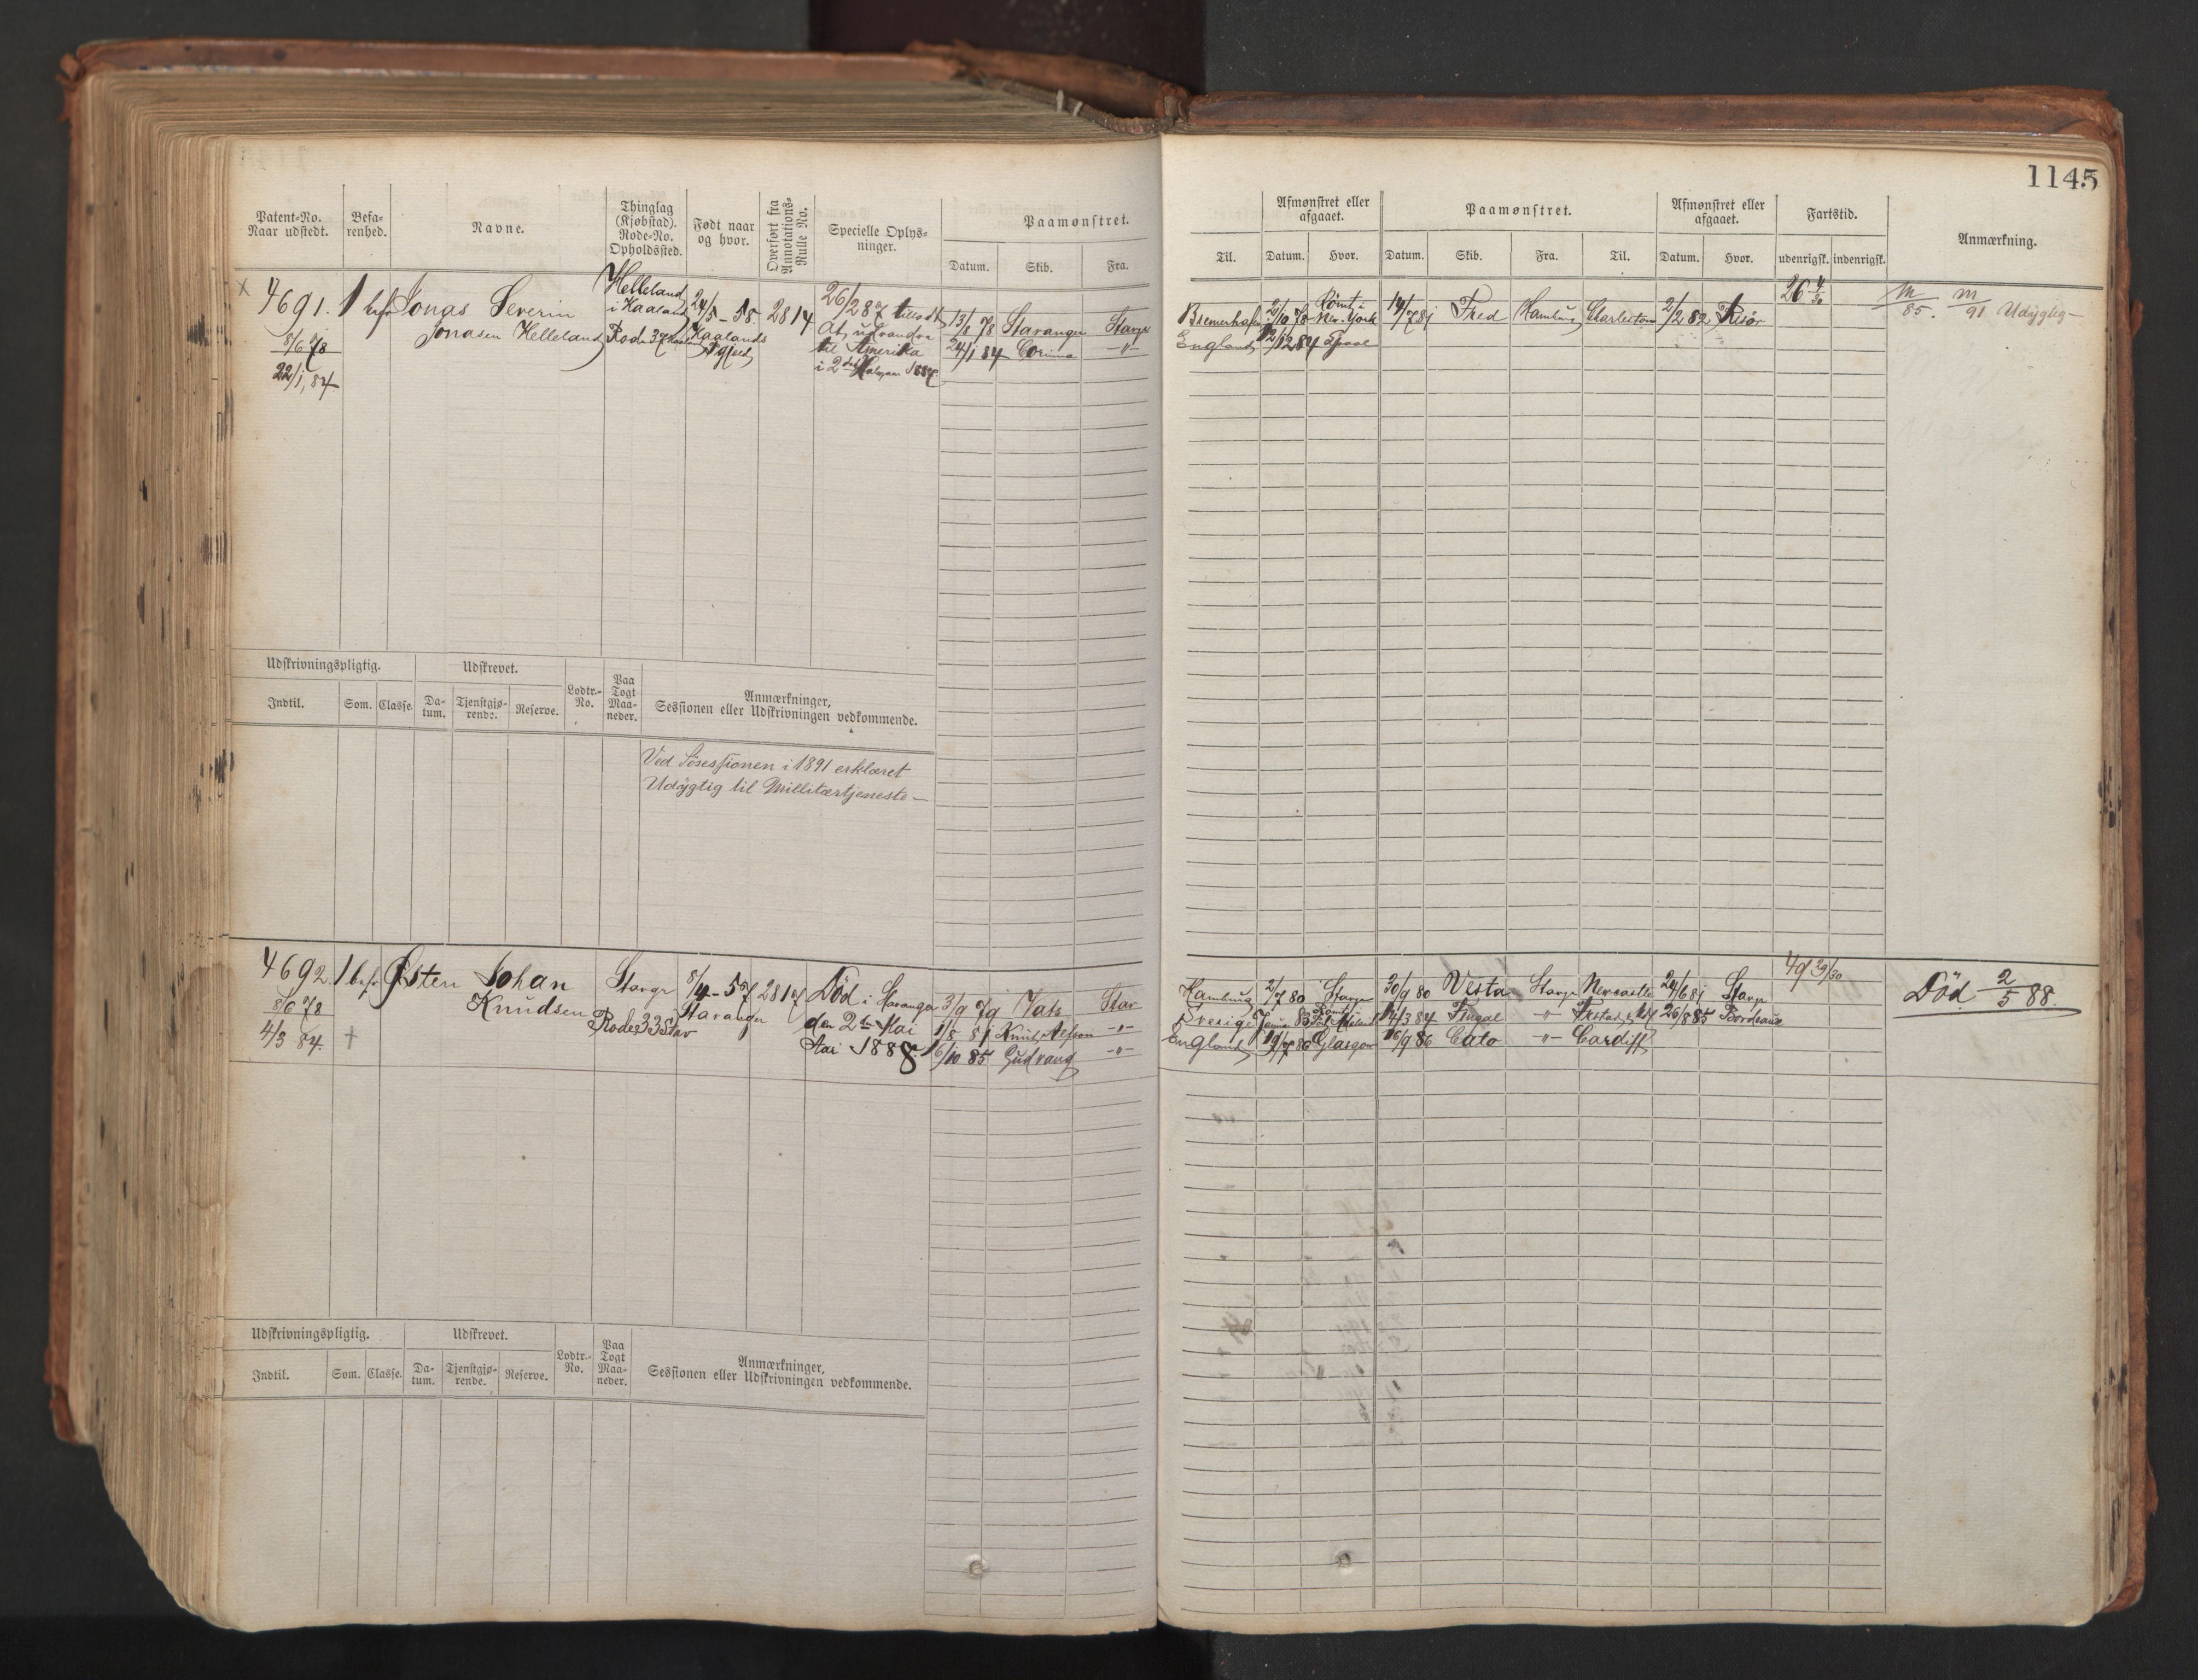 1145
Patent-No. Naar udstedt.
Befarenhed.
Navne.
Thinglag (Kjøbstad). Rode-No. Opholdssted.
Født naar og hvor.
Overført fra Annotations-Rulle No.
Specielle Oplysninger.
Paamønstret.
Datum. Skib. Fra.
Til.
Afmønstret eller afgaaet.
Datum. Hvor.
Paamønstret.
Datum. Skib. Fra. Til.
Afmønstret eller afgaaet.
Datum. Hvor.
Fartstid.
udenrigsk. indenrigsk.
Anmærkning.
4691.
8/6 78
22/1, 84
1 bef
Jonas Severin
Jonasen Helleland
Helleland
i Kaaland
Rode 37
24/5 - 58
Kaalands
2814
26/2 87 tilladt
at udvandre
til Amerika
i 2det Halvaar 1887
13/8 78 Stavanger Stavgr
24/1 84 Corina -"-
Bremerhafen 2/10 78 Rømt i New-York 14/7 81 Fred Hamburg Charlestown 2/2 82 Risør
England 12/12 84
26 4/30
m/85. m/91 Udygtig
Udskrivningspligtig. Udskrevet.
Indtil. Som. Classe. Datum. Tjenstgjørende. Reserve.
Lodtr.-No.
Paa Togt Maaneder.
Anmærkninger, Sessionen eller Udskrivningen vedkommende.
Ved Sösessionen i 1891 erklæret
Udygtig til Millitærtjeneste
4692
8/6 78
4/3 84.
†
1 bef
Østen Johan
Knudsen
Stavgr
Rode 33 Stav
8/4 - 57
Stavanger
2817
Död i Stavanger
den 2den Mai
Mai 1888
3/9 79 Vats Stav
1/8 81 -"-
6/10 85 Gudvang -"-
Hamburg 2/7 80 Stavgr 30/9 80 Vesta Stavgr Newcastle 24/6 81 Stavgr
Sverige 14/3 84 Fingal -"- 26/8 85 Bordeaux
England 19/7 86 Glasgow 16/9 86 Cato -"- Cardiff
49 29/30
Död 2/5 88.
Udskrivningspligtig. Udskrevet.
Indtil. Som. Classe. Datum. Tjenstgjørende. Reserve.
Lodtr.-No.
Paa Togt Maaneder.
Anmærkninger, Sessionen eller Udskrivningen vedkommende.